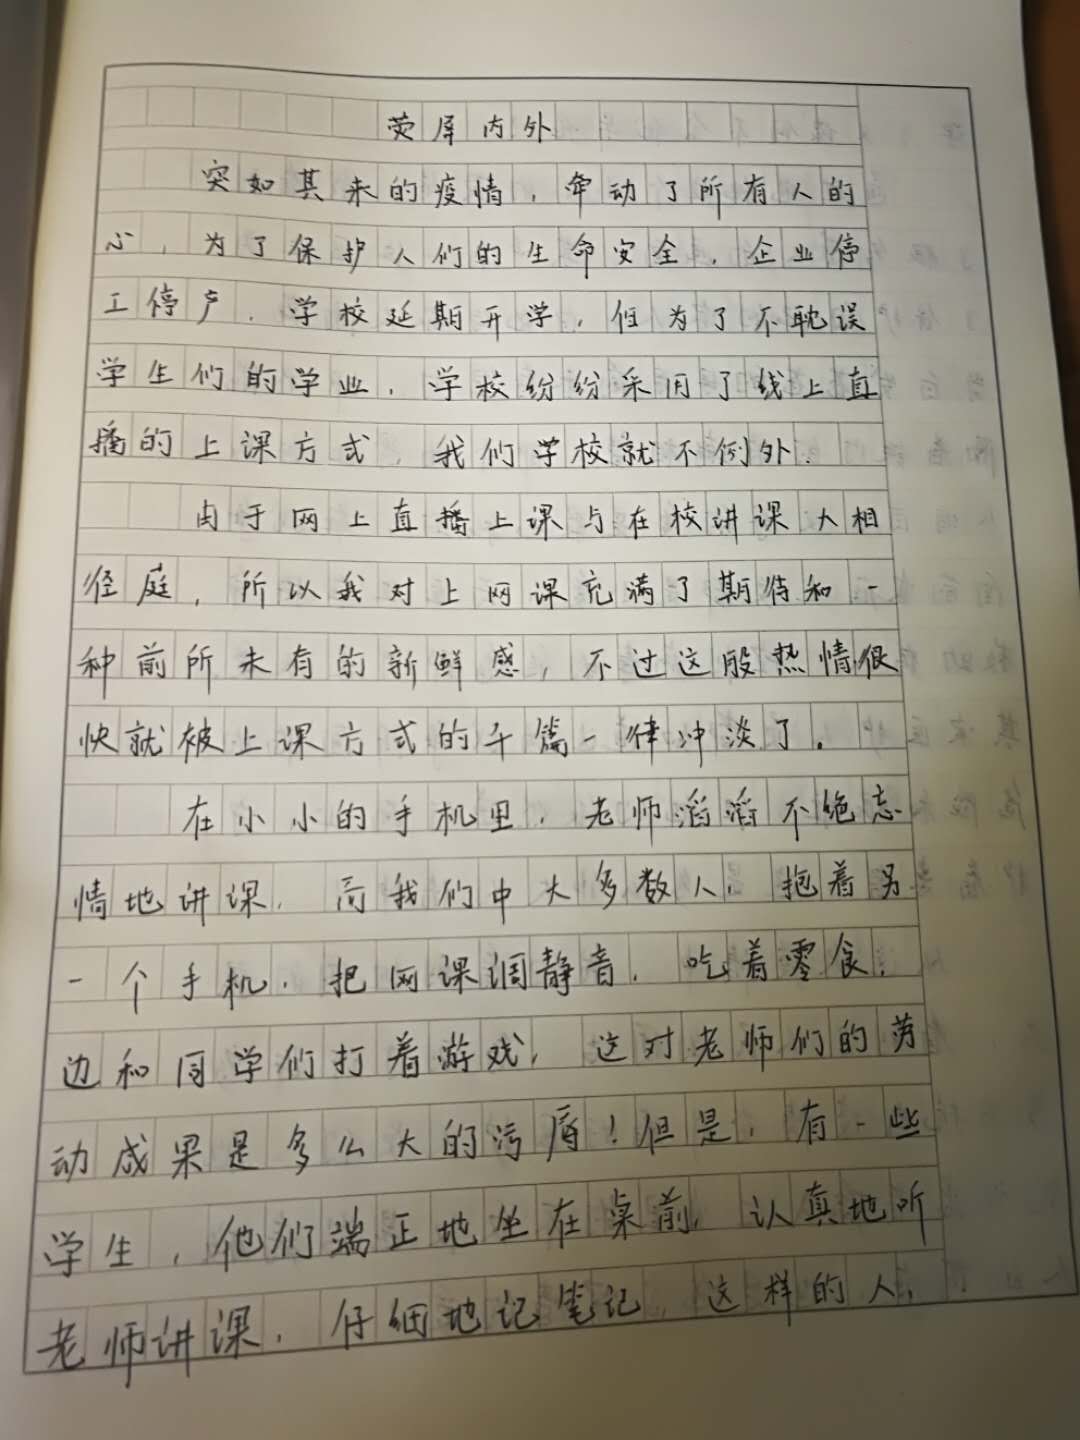 荧屏内外
突如其来的疫情，牵动了所有人的
心，为了保护人们的生命安全，企业停
工停产，学校延期开学，但为了不耽误
学生们的学业，学校纷纷采用了线上直
播的上课方式，我们学校就不例外.
由于网上直播上课与在校讲课大相
径庭，所以我对上网课充满了期待和一
种前所未有的新鲜感，不过这股热情很
快就被上课方式的千篇一律冲淡了。
在小小的手机里，老师滔滔不绝忘
情地讲课，而我们中大多数人，抱着另
一个手机，把网课调静音，吃着零食，
边和同学们打着游戏，这对老师们的劳
动成果是多么大的污辱！但是，有一些
学生，他们端正地坐在桌前，认真地听
老师讲课，仔细地记笔记，这样的人，